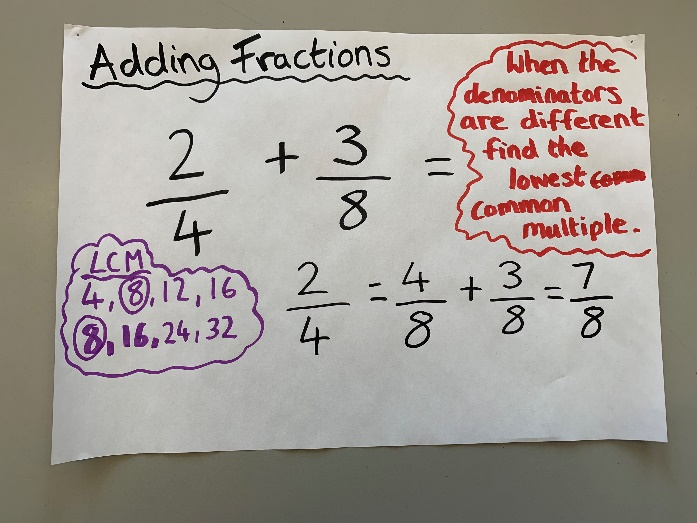 Adding Fractions
2/4 + 3/8 =
When the
denominators
are different
find the
lowest
common
multiple.
LCM
4, 8, 12, 16
8, 16, 24, 32
2/4 = 4/8 + 3/8 = 7/8